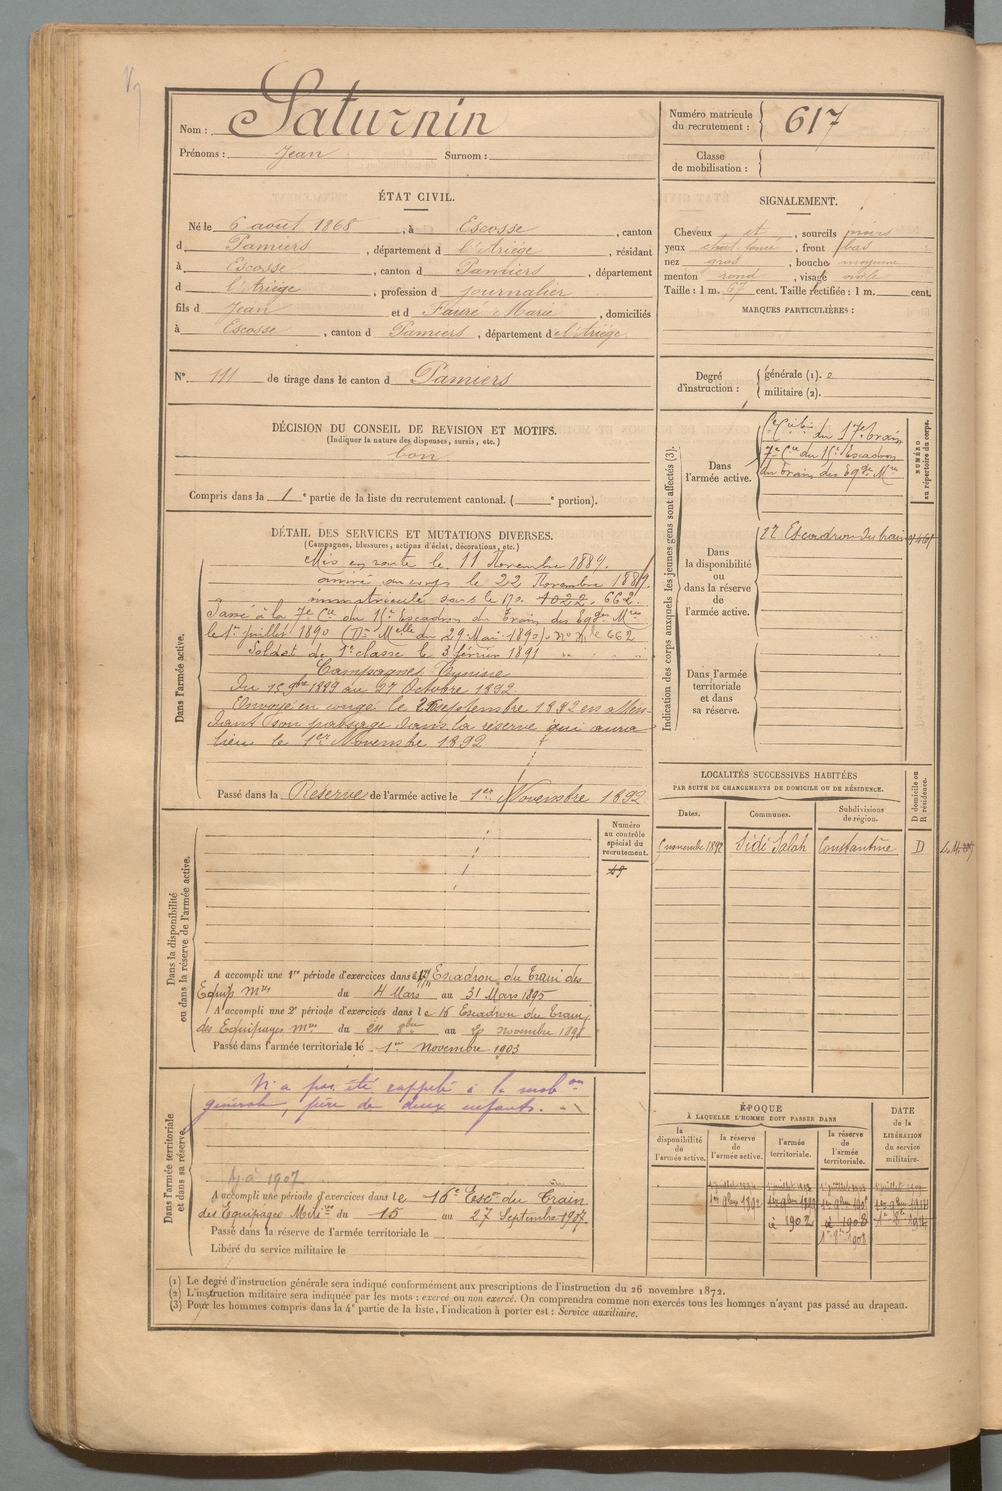 Nom : Saturnin
Prénoms : Jean Surnom :
Numéro matricule du recrutement : 617
Classe de mobilisation :
ÉTAT CIVIL.
Né le 6 août 1868, à Escosse, canton
d Pamiers, département d l'Ariège, résidant
à Escosse, canton d Pamiers, département
d l'Ariège, profession d journalier
fils d Jean et d Faure Marie, domiciliés
à Escosse, canton d Pamiers, département de l'Ariège.
SIGNALEMENT.
Cheveux et, sourcils noirs
yeux, front bas
nez gros, bouche moyenne
menton rond, visage ovale
Taille : 1 m. 67 cent. Taille rectifiée : 1 m. cent.
MARQUES PARTICULIÈRES :
N° 111 de tirage dans le canton d Pamiers
Degré d'instruction :
générale (1). 2
militaire (2).
DÉCISION DU CONSEIL DE REVISION ET MOTIFS.
(Indiquer la nature des dispenses, sursis, etc.)
bon
Compris dans la 1e partie de la liste du recrutement cantonal. ( e portion).
DÉTAIL DES SERVICES ET MUTATIONS DIVERSES.
(Campagnes, blessures, actions d'éclat, décorations, etc.)
Dans l'armée active.
Mis en route le 11 Novembre 1889.
arrivé au corps le 22 Novembre 1889,
immatriculé sous le No 1022. 662.
Passé à la 7e Cie du 16e Escadron du Train des Eq.ges Mres
le 1er juillet 1890 (Don Melle du 29 Mai 1890) No Mle 662
Soldat de 1e classe le 3 février 1891
Campagnes Tunisie
Du 15 9bre 1889 au 27 Octobre 1892
Envoyé en congé le septembre 1892 en atten-
dant son passage dans la réserve qui aura
lieu le 1er Novembre 1892
Passé dans la Réserve de l'armée active le 1er Novembre 1892
Indication des corps auxquels les jeunes gens sont affectés (3).
NUMÉRO au répertoire du corps.
Dans l'armée active.
du 17e train
7e Cie du 16e Escadron
du train des Eqges Mres
Dans la disponibilité ou dans la réserve de l'armée active.
17 Escadron du train
Dans l'armée territoriale et dans sa réserve.
LOCALITÉS SUCCESSIVES HABITÉES
PAR SUITE DE CHANGEMENTS DE DOMICILE OU DE RÉSIDENCE.
D domicile ou R résidence.
Dates. Communes. Subdivisions de région.
novembre 1892 Sidi Salah Constantine D
Dans la disponibilité ou dans la réserve de l'armée active.
Numéro au contrôle spécial du recrutement.
A accompli une 1re période d'exercices dans le Escadron du Train des
Equip Mres du 4 Mars au 31 Mars 1895
A accompli une 2e période d'exercices dans le 16 Escadron du train
des Equipages Mres du 24 8bre au novembre 1898
Passé dans l'armée territoriale le 1er novembre 1903
Dans l'armée territoriale et dans sa réserve.
N'a pas été rappelé à la mobon
générale, père de deux enfants.
1907
A accompli une période d'exercices dans le 16e Escon du Train
des Equipages Milires du 15 au 27 Septembre 1907.
Passé dans la réserve de l'armée territoriale le
Libéré du service militaire le
ÉPOQUE
À LAQUELLE L'HOMME DOIT PASSER DANS
la disponibilité de l'armée active.
la réserve de l'armée active.
l'armée territoriale.
la réserve de l'armée territoriale.
DATE de la LIBÉRATION du service militaire.
1er 9bre 1892
à 1902 à 1908
(1) Le degré d'instruction générale sera indiqué conformément aux prescriptions de l'instruction du 26 novembre 1872.
(2) L'instruction militaire sera indiquée par les mots : exercé ou non exercé. On comprendra comme non exercés tous les hommes n'ayant pas passé au drapeau.
(3) Pour les hommes compris dans la 4e partie de la liste, l'indication à porter est : Service auxiliaire.